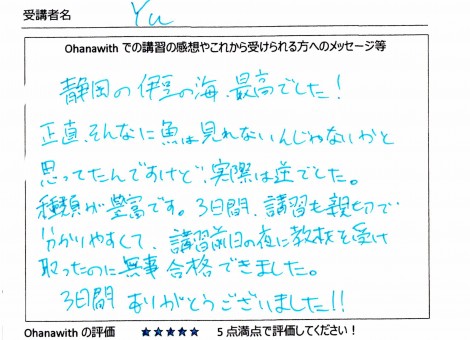 受講者名 Yu
Ohanawith での講習の感想やこれから受けられる方へのメッセージ等
静岡の伊豆の海、最高でした！
正直、そんなに魚は見れないんじゃないかと
思ってたんですけど、実際は逆でした。
種類が豊富です。3日間、講習も親切で
分かりやすくて、講習前日の夜に教材を受け
取ったのに無事合格できました。
3日間ありがとうございました!!
Ohanawith の評価 ★★★★★ 5 点満点で評価してください！